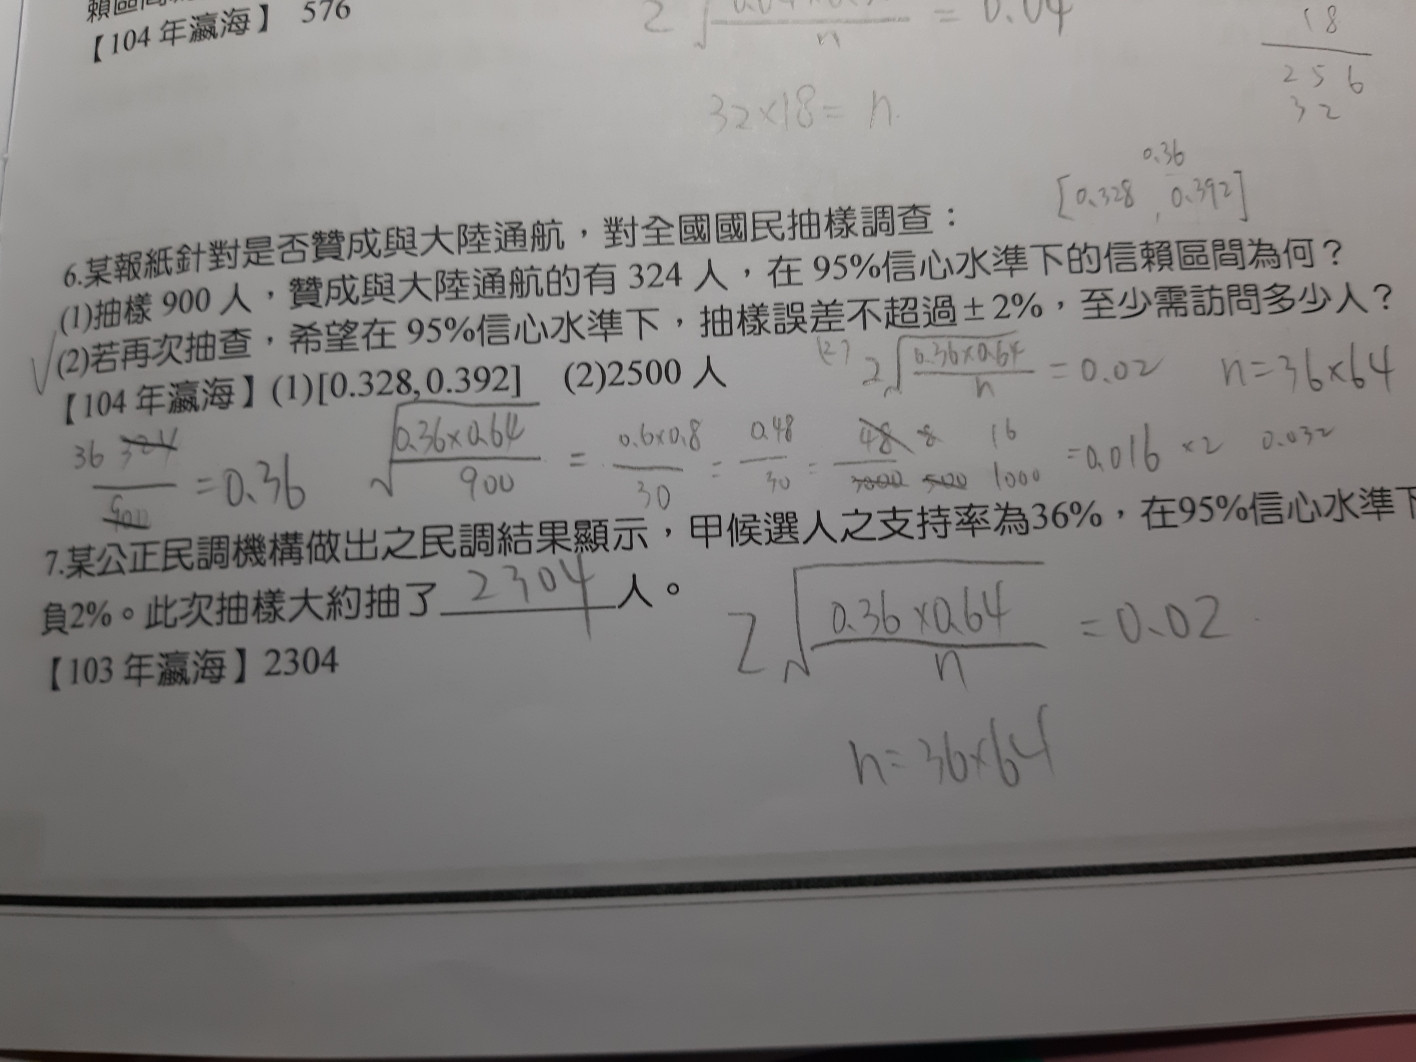 【104年瀛海】 576
= 0.04
n
18
32×18= n.
256
32
0.36
[0.328, 0.392]
6.某報紙針對是否贊成與大陸通航，對全國國民抽樣調查：
(1)抽樣 900 人，贊成與大陸通航的有 324 人，在 95%信心水準下的信賴區間為何？
√(2)若再次抽查，希望在 95%信心水準下，抽樣誤差不超過±2%，至少需訪問多少人？
【104年瀛海】(1)[0.328,0.392] (2)2500 人
(2) 2√(0.36×0.64/n) = 0.02 n=36×64
36 324/900 = 0.36 √(0.36×0.64/900) = 0.6×0.8/30 = 0.48/30 = 48/3000 8/500 16/1000 =0.016 ×2 0.032
7.某公正民調機構做出之民調結果顯示，甲候選人之支持率為36%，在95%信心水準下
負2%。此次抽樣大約抽了 2304 人。
2√(0.36×0.64/n) = 0.02
【103年瀛海】2304
n=36×64